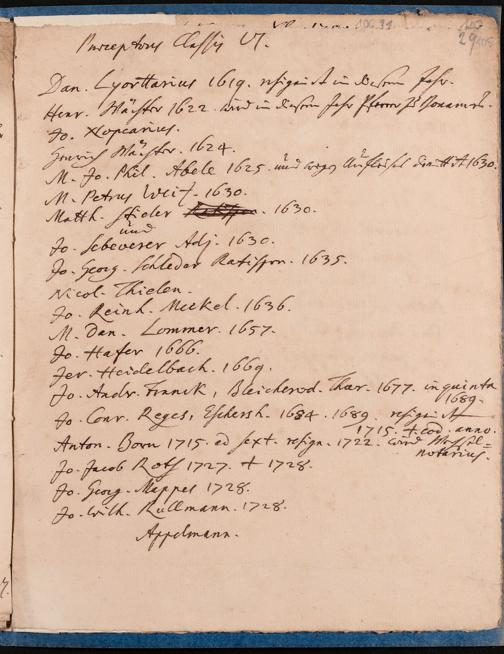 Praeceptores Classis VI.
Dan. Lyorttarius 1619. resignirt in diesem Jahr.
Henr. Wächter 1622. wird in diesem Jahr Pfarrer zu
Jo. Xopcarius.
Henrich Wächter. 1624.
M. Jo. Phil. Abele 1625. und wegen 1630.
M. Petrus Weis. 1630.
Matth. Stieler 1630.
und
Jo. Sebeverer Adj. 1630.
Jo. Georg. Schleder Ratispon. 1635.
Nicol. Thielen.
Jo. Reinh. Meckel. 1636.
M. Dan. Lommer. 1657.
Jo. Hafer 1666.
Jer. Heidelbach. 1669.
Jo. Andr. Franck, Bleicherod. Thur. 1677. in quinta
1689.
Jo. Conr. Reges, Eschersh. 1684. 1689. resignirt
1715. † eod. anno.
Anton. Born 1715. ad sext. resign. 1722. wird
notarius.
Jo. Jacob Roth 1727. † 1728.
Jo. Georg. Mappes 1728.
Jo. Wilh. Rullmann. 1728.
Appelmann.